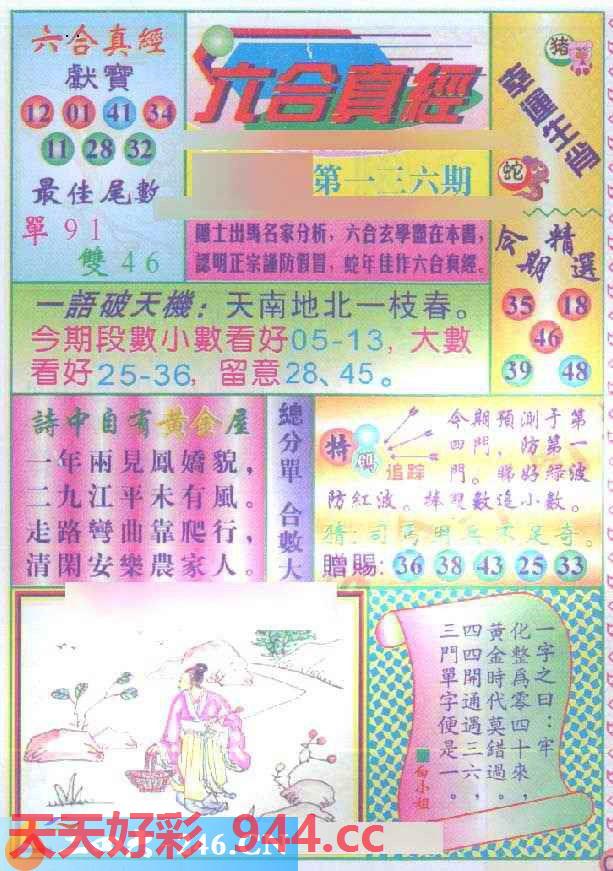 六合真經
獻寶
12 01 41 34
11 28 32
最佳尾數
單 91
雙 46
六合真經
第一三六期
隱士出馬名家分析，六合玄學盡在本書，
認明正宗謹防假冒，蛇年佳作六合真經。
豬
蛇
今期精選
35 18
46
39 48
一語破天機：天南地北一枝春。
今期段數小數看好05-13，大數
看好25-36，留意28、45。
詩中自有黃金屋
一年兩見鳳嬌貌，
二九江平未有風。
走路彎曲靠爬行，
清閑安樂農家人。
總分單 合數大
特碼
追踪
今期預測于第
四門，防第一
門。睇好綠波
防紅波。捧雙數追小數。
猜：司馬用兵不足奇。
贈賜：36 38 43 25 33
一字之曰：牢
化整爲零四十來，
黃金時代莫錯過。
四四開通遇三六，
三門單字便是一。
白小姐
天天好彩 944.cc
246.CN